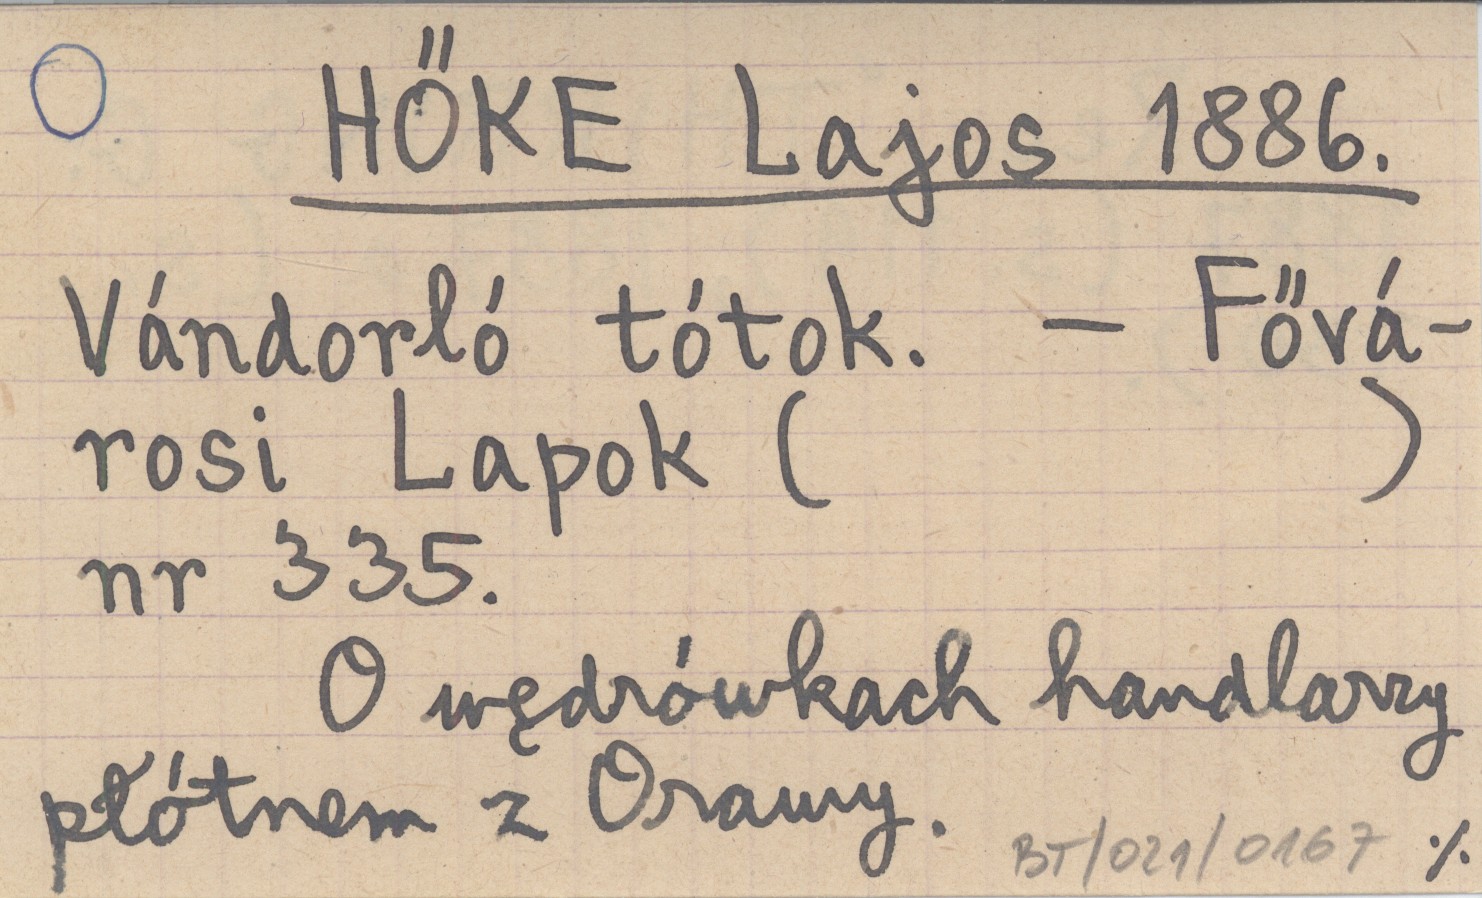 HŐKE Lajos 1886.
Vándorló tótok. — Fővá-
rosi Lapok (          )
nr 335.
O wędrówkach handlarzy
płótnem z Orawy.
BT/021/0167 ./.